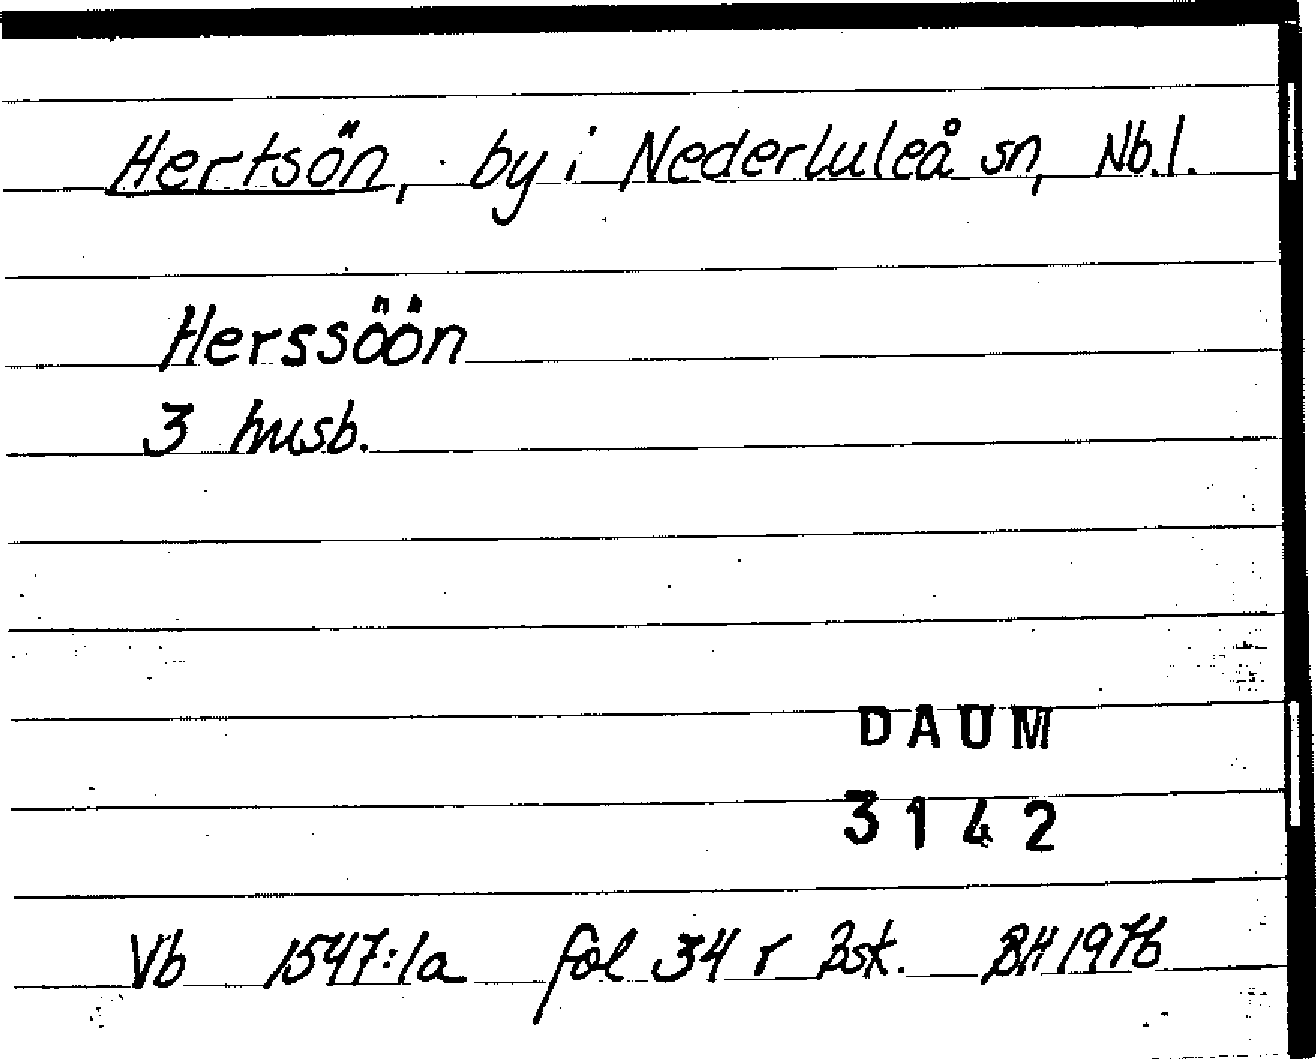 Hertsön, by i Nederluleå sn, Nb.l.
Herssöön
3 husb.
DAUM
3142
Vb 1547:1a fol 34 r Bsk. BH 1976